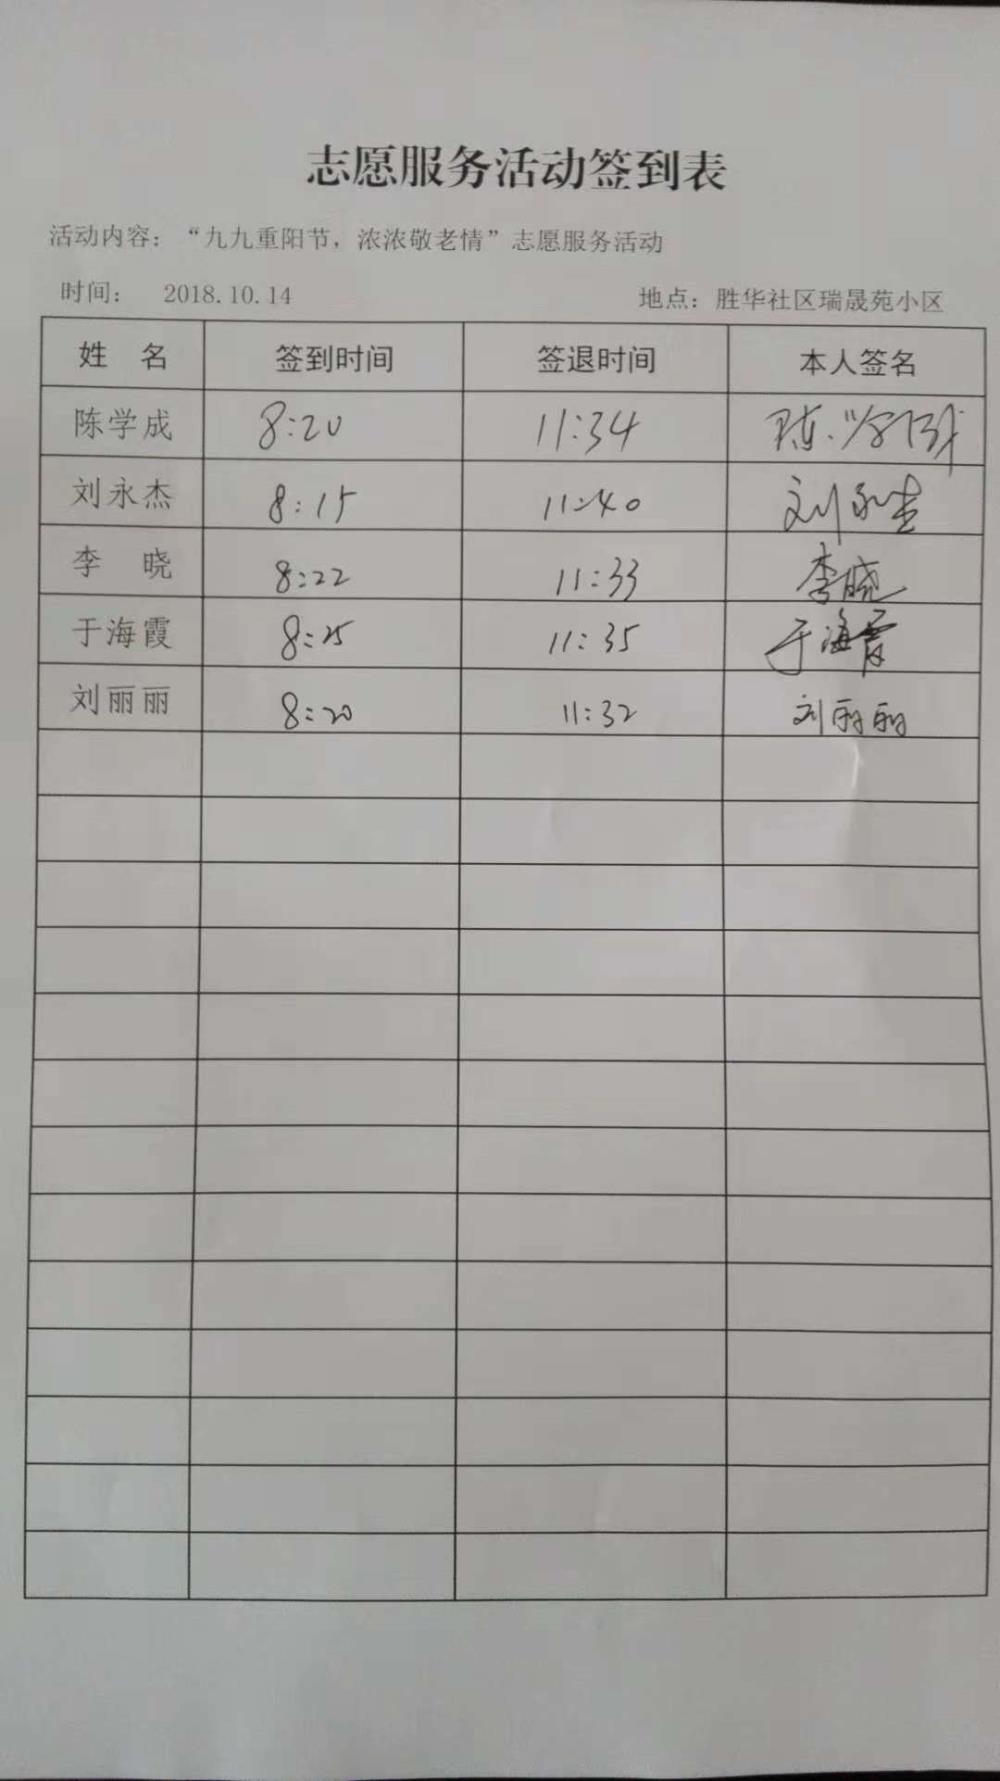 志愿服务活动签到表
活动内容：“九九重阳节，浓浓敬老情”志愿服务活动
时间： 2018.10.14 地点：胜华社区瑞晟苑小区
姓 名 签到时间 签退时间 本人签名
陈学成 8:20 11:34 陈学成
刘永杰 8:15 11:40 刘永杰
李 晓 8:22 11:33 李晓
于海霞 8:25 11:35 于海霞
刘丽丽 8:20 11:32 刘丽丽